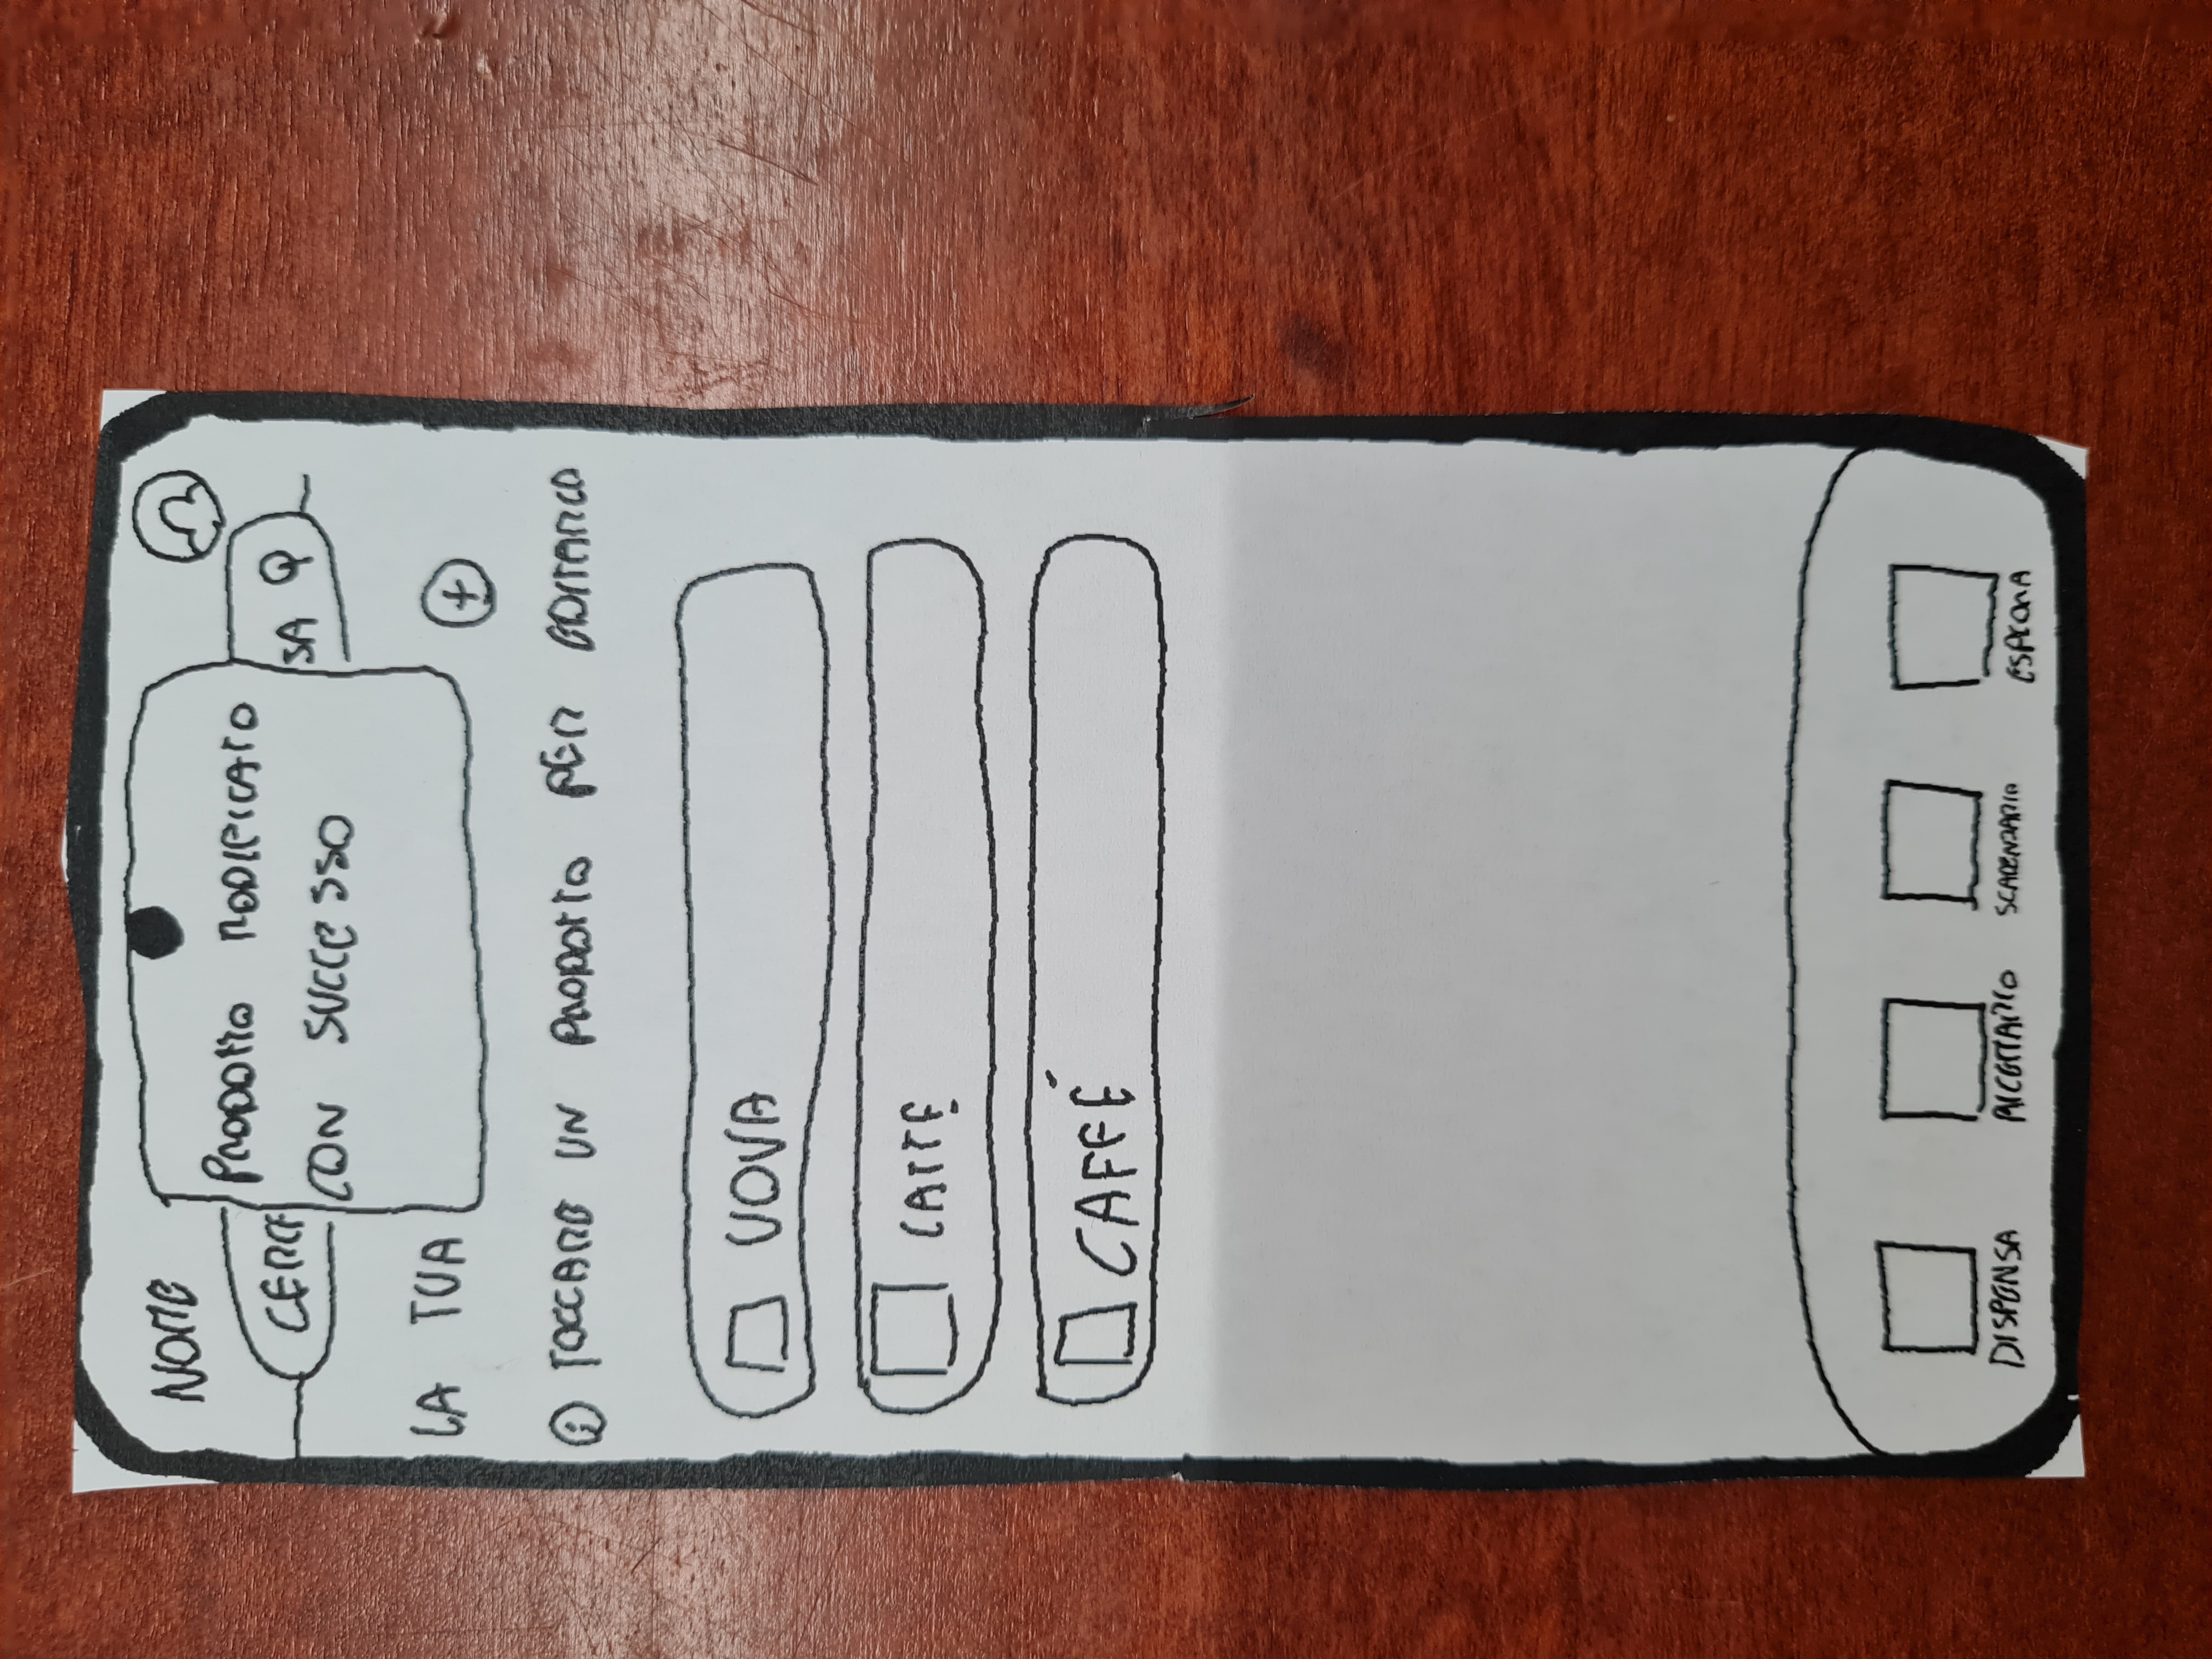 NOME
PRODOTTO MODIFICATO
CON SUCCESSO
CERCA SA
LA TUA
TOCCARE UN PRODOTTO PER EDITARLO
UOVA
LATTE
CAFFÉ
DISPENSA RICETTARIO SCADENZARIO ESPLORA